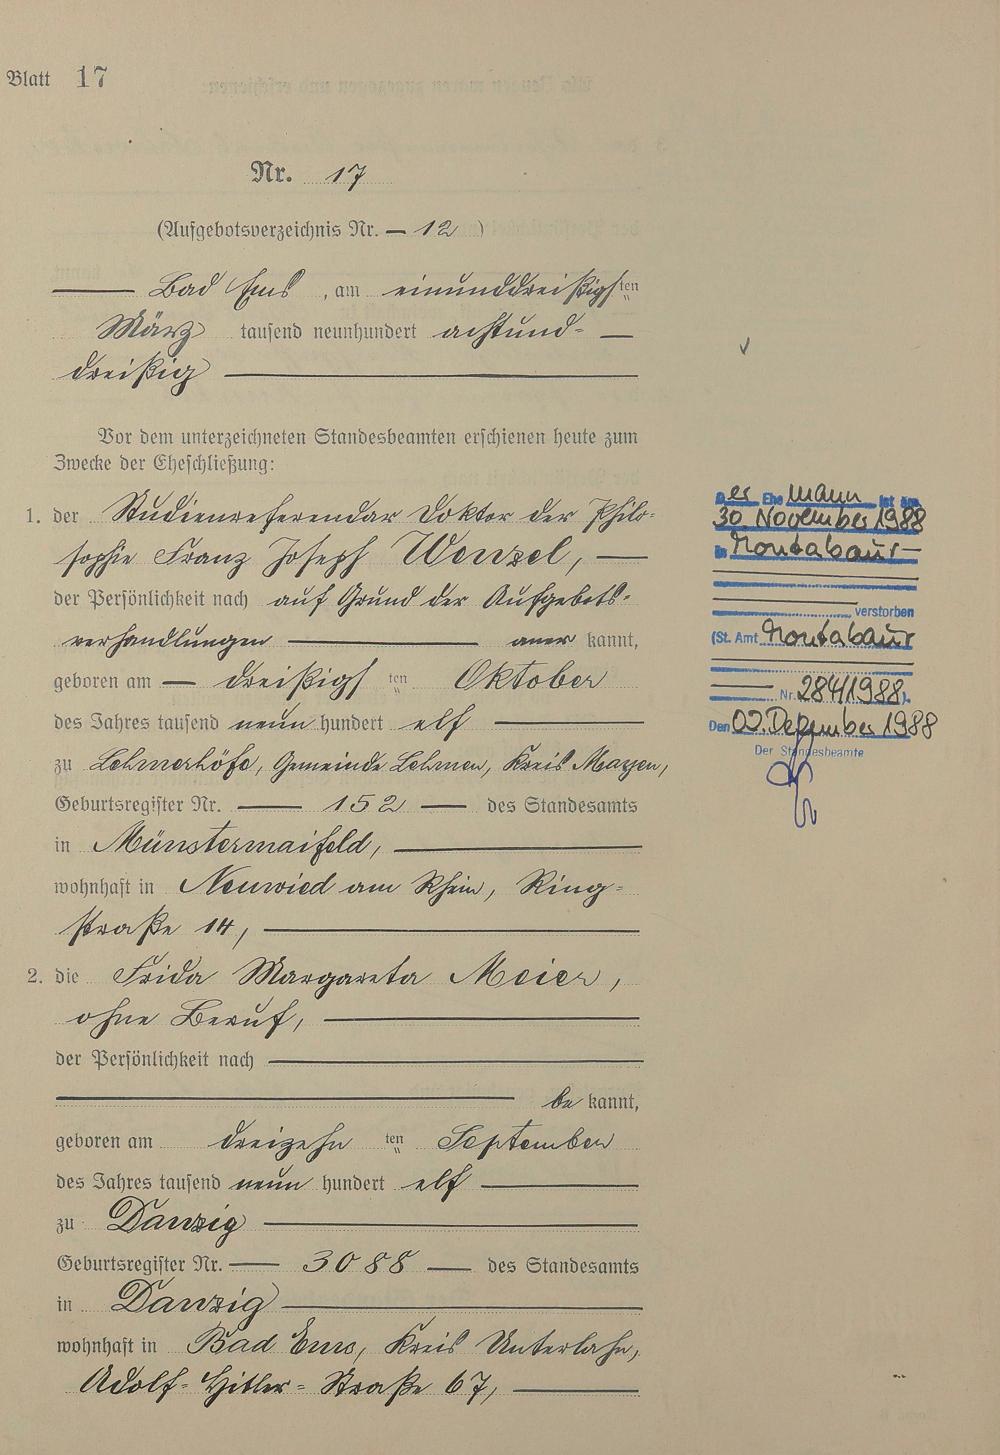 Blatt 17
Nr. 17
(Aufgebotsverzeichnis Nr. — 12 )
Bad Ems, am einunddreißigsten
März tausend neunhundert achtund-
dreißig
Vor dem unterzeichneten Standesbeamten erschienen heute zum
Zwecke der Eheschließung:
1. der Studienreferendar Doktor der Philo-
sophie Franz Joseph Wenzel,
der Persönlichkeit nach auf Grund der Aufgebots-
verhandlungen anerkannt,
geboren am dreißigsten Oktober
des Jahres tausend neun hundert elf
zu Lehmerhöfe, Gemeinde Lehmen, Kreis Mayen,
Geburtsregister Nr. 152 des Standesamts
in Münstermaifeld,
wohnhaft in Neuwied am Rhein, Ring-
straße 14,
2. die Frida Margareta Meier,
ohne Beruf,
der Persönlichkeit nach
bekannt,
geboren am dreizehnten September
des Jahres tausend neun hundert elf
zu Danzig
Geburtsregister Nr. 3088 des Standesamts
in Danzig
wohnhaft in Bad Ems, Kreis Unterlahn,
Adolf-Hitler-Straße 67,
Der Ehemann ist am
30. November 1988
in Montabaur
verstorben
(St. Amt Montabaur
Nr. 284/1988).
Den 02. Dezember 1988
Der Standesbeamte